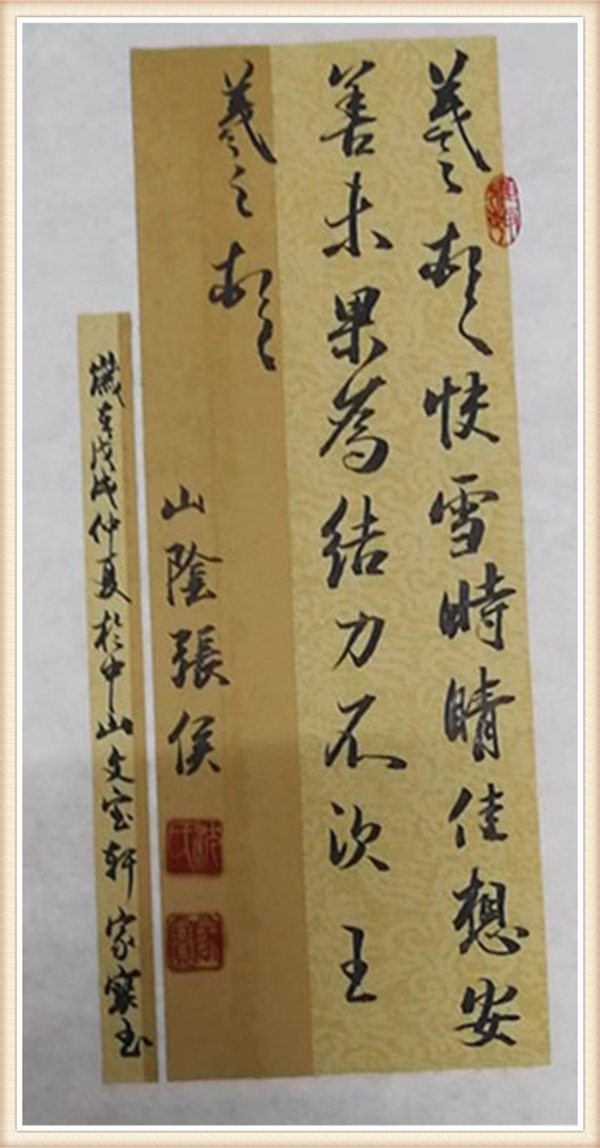 羲之頓首快雪時晴佳想安
善未果為結力不次王
羲之頓首
山陰張侯
歲在戊戌仲夏於中山文宝軒家寳书